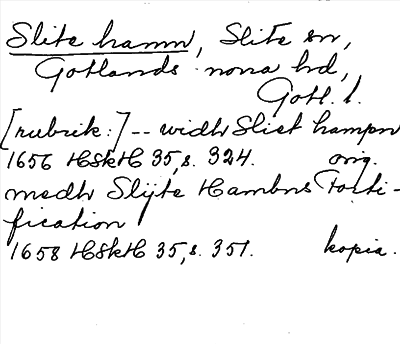 Slite hamn, Slite sn,
Gotlands norra hd,
Gotl. l.
[rubrik:] -- widh Sliet hampn
1656 HSkH 35, s. 324. orig.
medh Slijte Hambns Forti-
fication
1658 HSkH 35, s. 351. kopia.